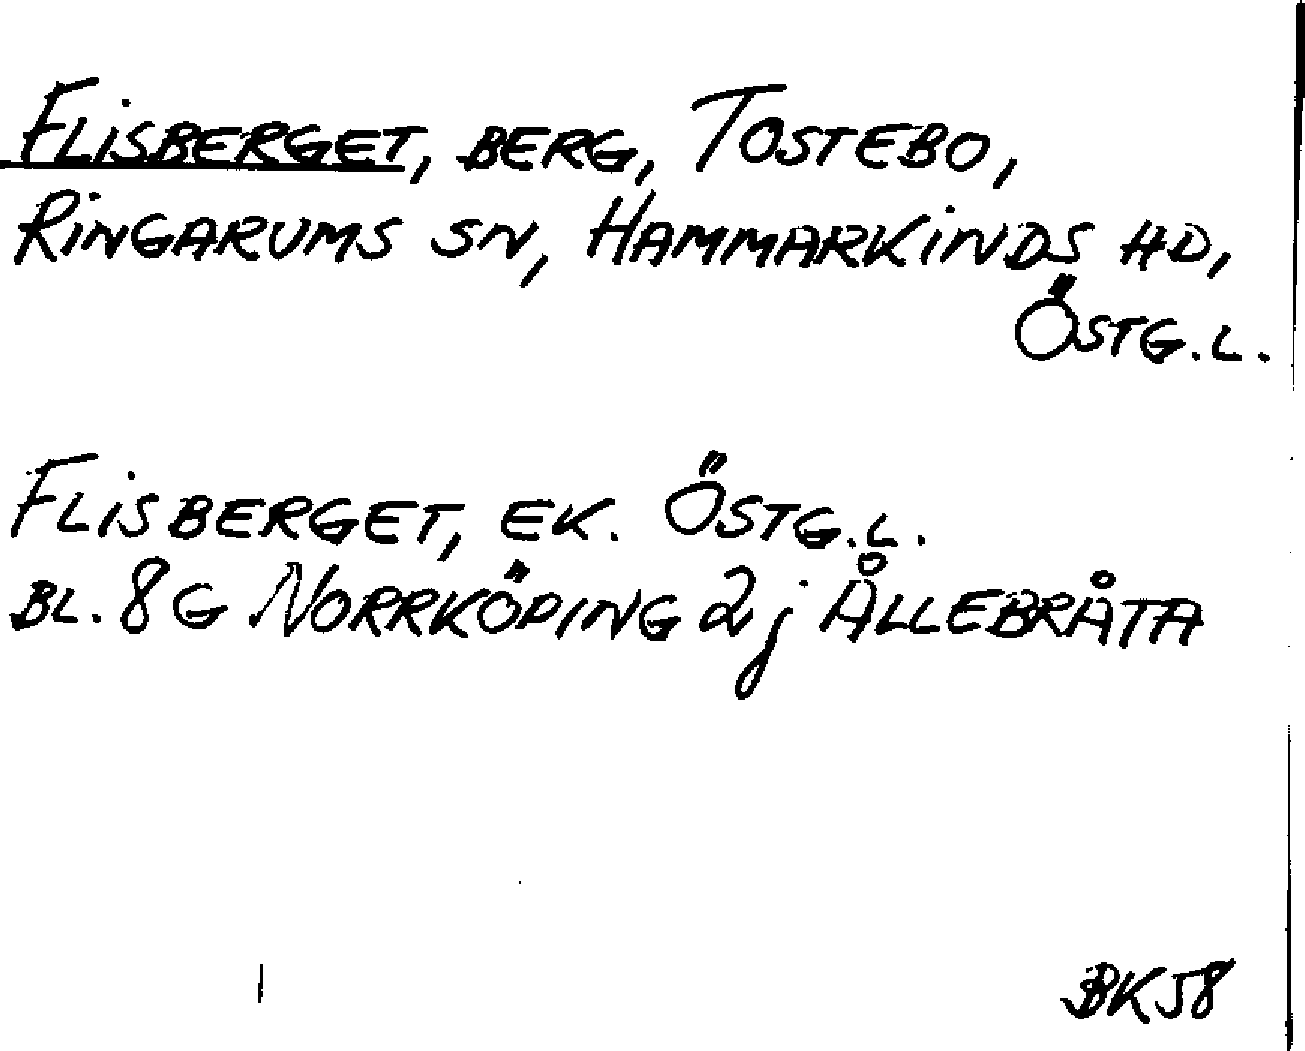 FLISBERGET, BERG, TOSTEBO,
RINGARUMS SN, HAMMARKINDS HD,
ÖSTG.L.
FLISBERGET, EK. ÖSTG.L.
BL. 8G NORRKÖPING 2j ÅLLEBRÅTA
BK58